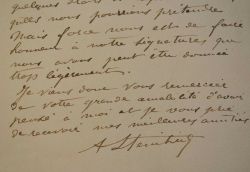 quelques
qu'elles nous pourrions prétendre
Mais force nous est de faire
honneur à notre signature que
nous avons peut être donné
trop légèrement.
Je viens donc vous remercier
de votre grande amabilité d'avoir
pensé à moi et je vous prie
de recevoir mes meilleures amitiés
A Steinheil